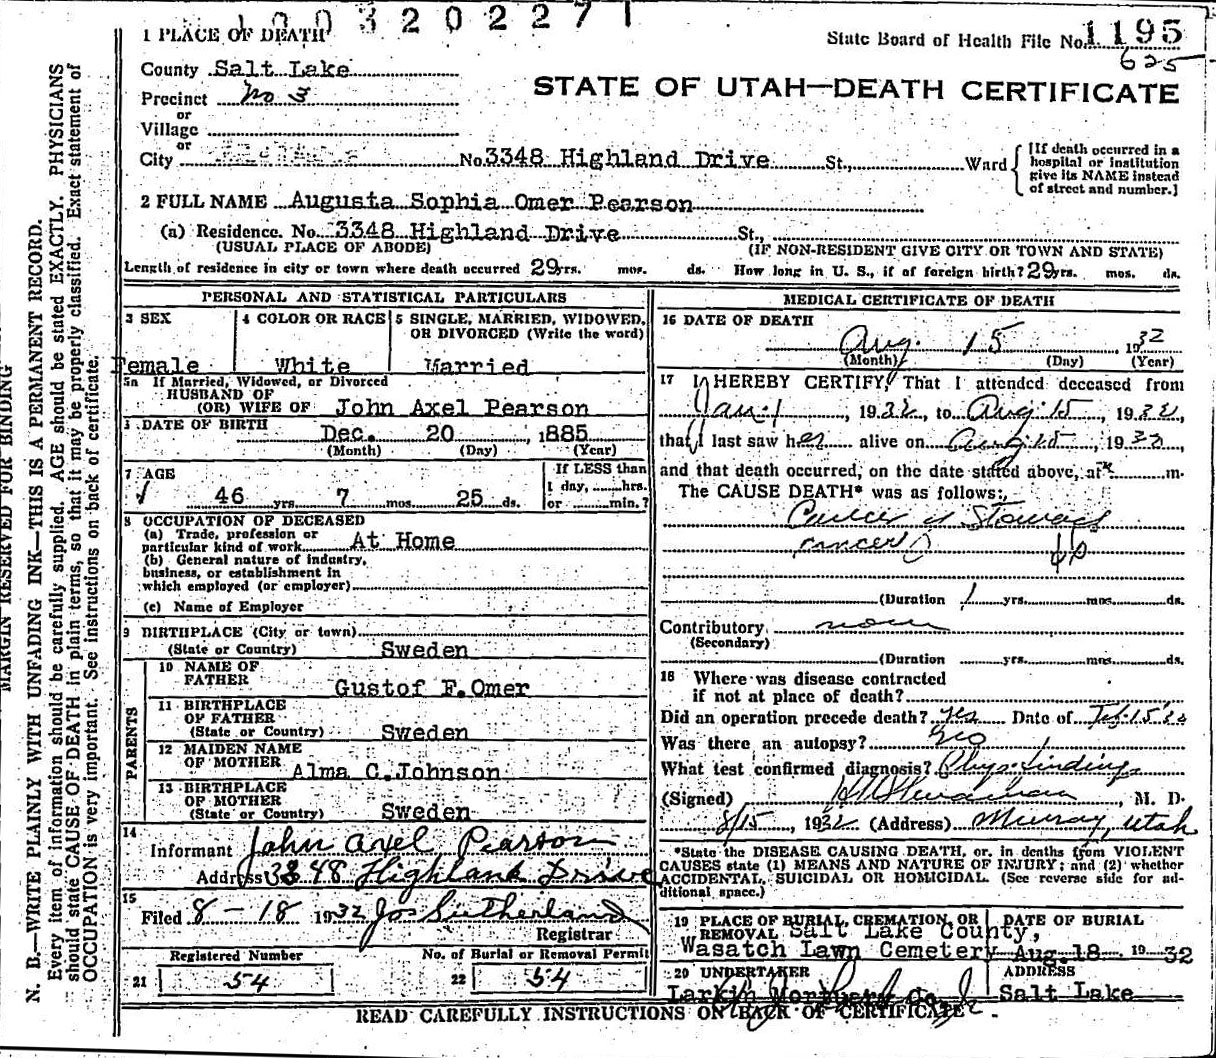 1003202271
1 PLACE OF DEATH
State Board of Health File No. 1195
625
County Salt Lake
STATE OF UTAH—DEATH CERTIFICATE
Precinct No 3
or
Village
or
City No. 3348 Highland Drive St., Ward
[If death occurred in a hospital or institution give its NAME instead of street and number.]
2 FULL NAME Augusta Sophia Omer Pearson
(a) Residence. No. 3348 Highland Drive St.,
(USUAL PLACE OF ABODE) (IF NON-RESIDENT GIVE CITY OR TOWN AND STATE)
Length of residence in city or town where death occurred 29 yrs. mos. ds. How long in U. S., if of foreign birth? 29 yrs. mos. ds.
PERSONAL AND STATISTICAL PARTICULARS
3 SEX
Female
4 COLOR OR RACE
White
5 SINGLE, MARRIED, WIDOWED,
OR DIVORCED (Write the word)
Married
5a If Married, Widowed, or Divorced
HUSBAND OF
(OR) WIFE OF John Axel Pearson
DATE OF BIRTH Dec. 20, 1885
(Month) (Day) (Year)
7 AGE
46 yrs. 7 mos. 25 ds.
If LESS than
1 day, hrs.
or min.?
8 OCCUPATION OF DECEASED
(a) Trade, profession or
particular kind of work At Home
(b) General nature of industry,
business, or establishment in
which employed (or employer)
(c) Name of Employer
9 BIRTHPLACE (City or town)
(State or Country) Sweden
PARENTS
10 NAME OF
FATHER Gustof F. Omer
11 BIRTHPLACE
OF FATHER
(State or Country) Sweden
12 MAIDEN NAME
OF MOTHER Alma C. Johnson
13 BIRTHPLACE
OF MOTHER
(State or Country) Sweden
14
Informant John Axel Pearson
Address 3348 Highland Drive
15
Filed 8-18 1932 Jos Sutherland
Registrar
Registered Number
21 54
No. of Burial or Removal Permit
22 54
MEDICAL CERTIFICATE OF DEATH
16 DATE OF DEATH
Aug. 15, 1932
(Month) (Day) (Year)
17 I HEREBY CERTIFY, That I attended deceased from
Jan. 1, 1932, to Aug. 15, 1932,
that I last saw her alive on Aug 15, 1932,
and that death occurred, on the date stated above, at m.
The CAUSE DEATH* was as follows:
Cancer of Stomach
cancer
(Duration 1 yrs. mos. ds.
Contributory none
(Secondary)
(Duration yrs. mos. ds.
18 Where was disease contracted
if not at place of death?
Did an operation precede death? yes Date of Feb. 15 32
Was there an autopsy? No
What test confirmed diagnosis? Phys. findings
(Signed) , M. D.
8/15, 1932 (Address) Murray, Utah
*State the DISEASE CAUSING DEATH, or, in deaths from VIOLENT
CAUSES state (1) MEANS AND NATURE OF INJURY; and (2) whether
ACCIDENTAL, SUICIDAL OR HOMICIDAL. (See reverse side for ad-
ditional space.)
19 PLACE OF BURIAL, CREMATION, OR
REMOVAL Salt Lake County,
Wasatch Lawn Cemetery
DATE OF BURIAL
Aug. 18 1932
20 UNDERTAKER
Larkin Mortuary Co.
ADDRESS
Salt Lake
READ CAREFULLY INSTRUCTIONS ON BACK OF CERTIFICATE
MARGIN RESERVED FOR BINDING
N. B.—WRITE PLAINLY WITH UNFADING INK—THIS IS A PERMANENT RECORD.
Every item of information should be carefully supplied. AGE should be stated EXACTLY. PHYSICIANS
should state CAUSE OF DEATH in plain terms, so that it may be properly classified. Exact statement of
OCCUPATION is very important. See instructions on back of certificate.